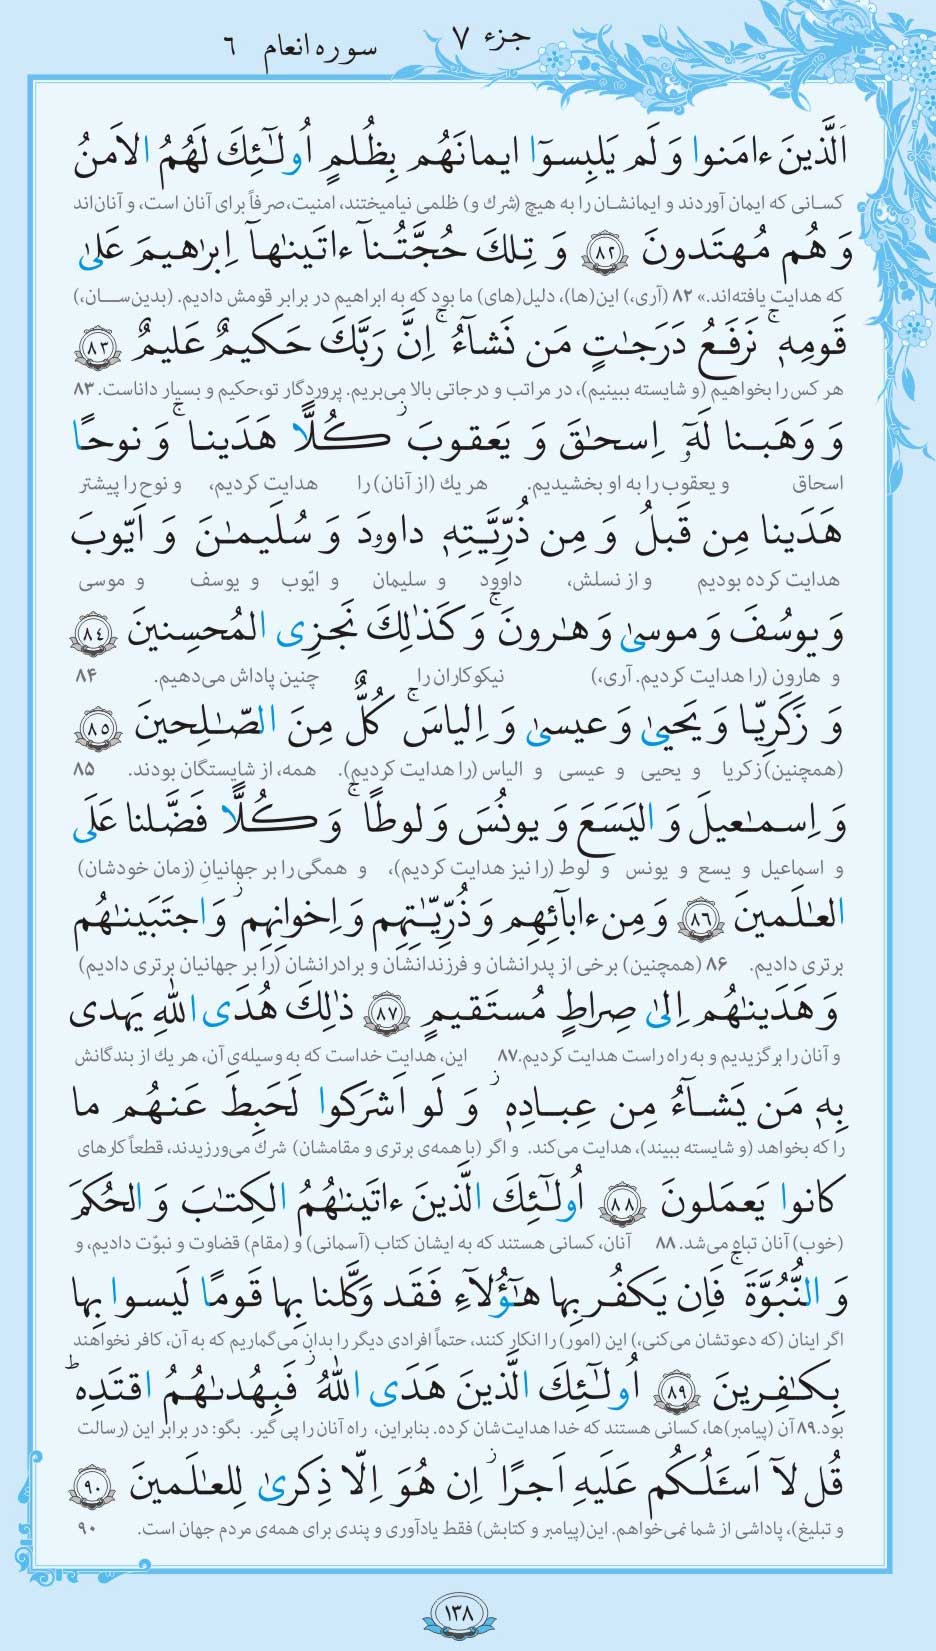 جزء ۷
سوره انعام ۶
اَلَّذینَ ءامَنوا وَ لَم یَلبِسوٓا ایمانَهُم بِظُلمٍ اُولٰٓئِكَ لَهُمُ الاَمنُ
کسانی که ایمان آوردند و ایمانشان را به هیچ (شرك و) ظلمی نیامیختند، امنیت، صرفاً برای آنان است، و آنان‌اند
وَ هُم مُهتَدونَ ﴿۸۲﴾ وَ تِلكَ حُجَّتُنآ ءاتَینٰهآ اِبرٰهیمَ عَلیٰ
که هدایت یافته‌اند.» ۸۲ (آری،) این(ها)، دلیل(های) ما بود که به ابراهیم در برابر قومش دادیم. (بدین‌ســان،)
قَومِهٖۚ نَرفَعُ دَرَجٰتٍ مَن نَشآءُۚ اِنَّ رَبَّكَ حَكیمٌ عَلیمٌ ﴿۸۳﴾
هر کس را بخواهیم (و شایسته ببینیم)، در مراتب و درجاتی بالا می‌بریم. پروردگار تو، حکیم و بسیار داناست. ۸۳
وَ وَهَبنا لَهٗٓ اِسحٰقَ وَ یَعقوبَۚ كُلًّا هَدَیناۚ وَ نوحًا
اسحاق و یعقوب را به او بخشیدیم. هر یك (از آنان) را هدایت کردیم، و نوح را پیشتر
هَدَینا مِن قَبلُ وَ مِن ذُرِّیَّتِهٖ داوودَ وَ سُلَیمٰنَ وَ اَیّوبَ
هدایت کرده بودیم و از نسلش، داوود و سلیمان و ایّوب و یوسف و موسی
وَ یوسُفَ وَ موسیٰ وَ هٰرونَۚ وَ كَذٰلِكَ نَجزِی المُحسِنینَ ﴿۸۴﴾
و هارون (را هدایت کردیم. آری،) نیکوکاران را چنین پاداش می‌دهیم. ۸۴
وَ زَكَرِیّا وَ یَحییٰ وَ عیسیٰ وَ اِلیاسَۚ كُلٌّ مِنَ الصّٰلِحینَ ﴿۸۵﴾
(همچنین) زکریا و یحیی و عیسی و الیاس (را هدایت کردیم). همه، از شایستگان بودند. ۸۵
وَ اِسمٰعیلَ وَ الیَسَعَ وَ یونُسَ وَ لوطًاۚ وَ كُلًّا فَضَّلنا عَلَی
و اسماعیل و یسع و یونس و لوط (را نیز هدایت کردیم)، و همگی را بر جهانیانِ (زمان خودشان)
العٰلَمینَ ﴿۸۶﴾ وَ مِن ءابآئِهِم وَ ذُرِّیّٰتِهِم وَ اِخوانِهِمۚ وَ اجتَبَینٰهُم
برتری دادیم. ۸۶ (همچنین) برخی از پدرانشان و فرزندانشان و برادرانشان (را بر جهانیان برتری دادیم)
وَ هَدَینٰهُم اِلیٰ صِراطٍ مُستَقیمٍ ﴿۸۷﴾ ذٰلِكَ هُدَی اللّٰهِ یَهدی
و آنان را برگزیدیم و به راه راست هدایت کردیم. ۸۷ این، هدایت خداست که به وسیله‌ی آن، هر یك از بندگانش
بِهٖ مَن یَشآءُ مِن عِبادِهٖۚ وَ لَو اَشرَكوا لَحَبِطَ عَنهُم ما
را که بخواهد (و شایسته ببیند)، هدایت می‌کند. و اگر (با همه‌ی برتری و مقامشان) شرك می‌ورزیدند، قطعاً کارهای
كانوا یَعمَلونَ ﴿۸۸﴾ اُولٰٓئِكَ الَّذینَ ءاتَینٰهُمُ الكِتٰبَ وَ الحُكمَ
(خوب) آنان تباه می‌شد. ۸۸ آنان، کسانی هستند که به ایشان کتاب (آسمانی) و (مقام) قضاوت و نبوّت دادیم، و
وَ النُّبُوَّةَۚ فَاِن یَكفُر بِها هٰٓؤُلآءِ فَقَد وَكَّلنا بِها قَومًا لَیسوا بِها
اگر اینان (که دعوتشان می‌کنی،) این (امور) را انکار کنند، حتماً افرادی دیگر را بدان می‌گماریم که به آن، کافر نخواهند
بِكٰفِرینَ ﴿۸۹﴾ اُولٰٓئِكَ الَّذینَ هَدَی اللّٰهُۚ فَبِهُدىٰهُمُ اقتَدِهۗ
بود. ۸۹ آن (پیامبر)ها، کسانی هستند که خدا هدایت‌شان کرده. بنابراین، راه آنان را پی گیر. بگو: در برابر این (رسالت
قُل لآ اَسئَلُكُم عَلَیهِ اَجرًاۚ اِن هُوَ اِلّا ذِكریٰ لِلعٰلَمینَ ﴿۹۰﴾
و تبلیغ)، پاداشی از شما نمی‌خواهم. این (پیامبر و کتابش) فقط یادآوری و پندی برای همه‌ی مردم جهان است. ۹۰
۱۳۸